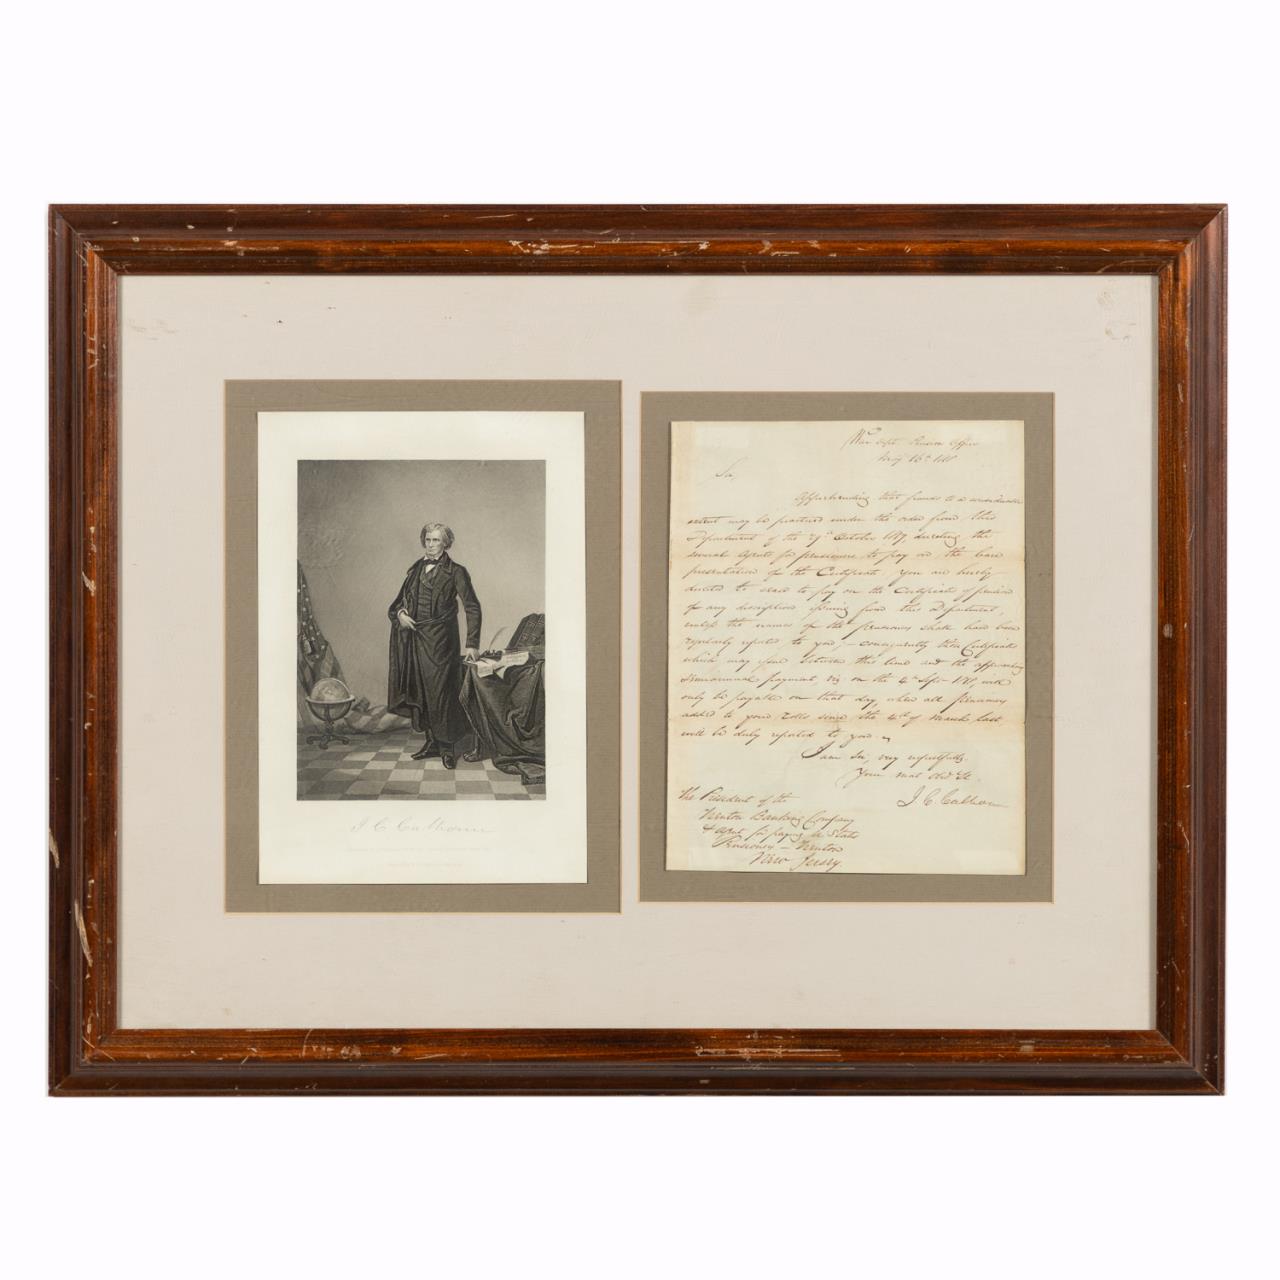 J. C. Calhoun
War Dept. Pension Office
May 16th 1818
Sir,
Apprehending that frauds to a considerable
extent may be practised under the order from this
Department of the 29th October 1817, directing the
several Agents for pensioners to pay on the bare
presentation of the Certificate, you are hereby
directed to cease to pay on the Certificates of pension
of any description issuing from this Department,
unless the names of the pensioners shall have been
regularly reported to you, – consequently those Certificates
which may issue between this time and the approaching
Semiannual payment viz. on the 4th Sept. 1818, will
only be payable on that day, when all Pensioners
added to your rolls since the 4th of March last
will be duly reported to you.
I am Sir, very respectfully
Your most Obd. St.
J. C. Calhoun
The President of the
Trenton Banking Company
& Agent for paying U. States
Pensioners – Trenton
New Jersey.